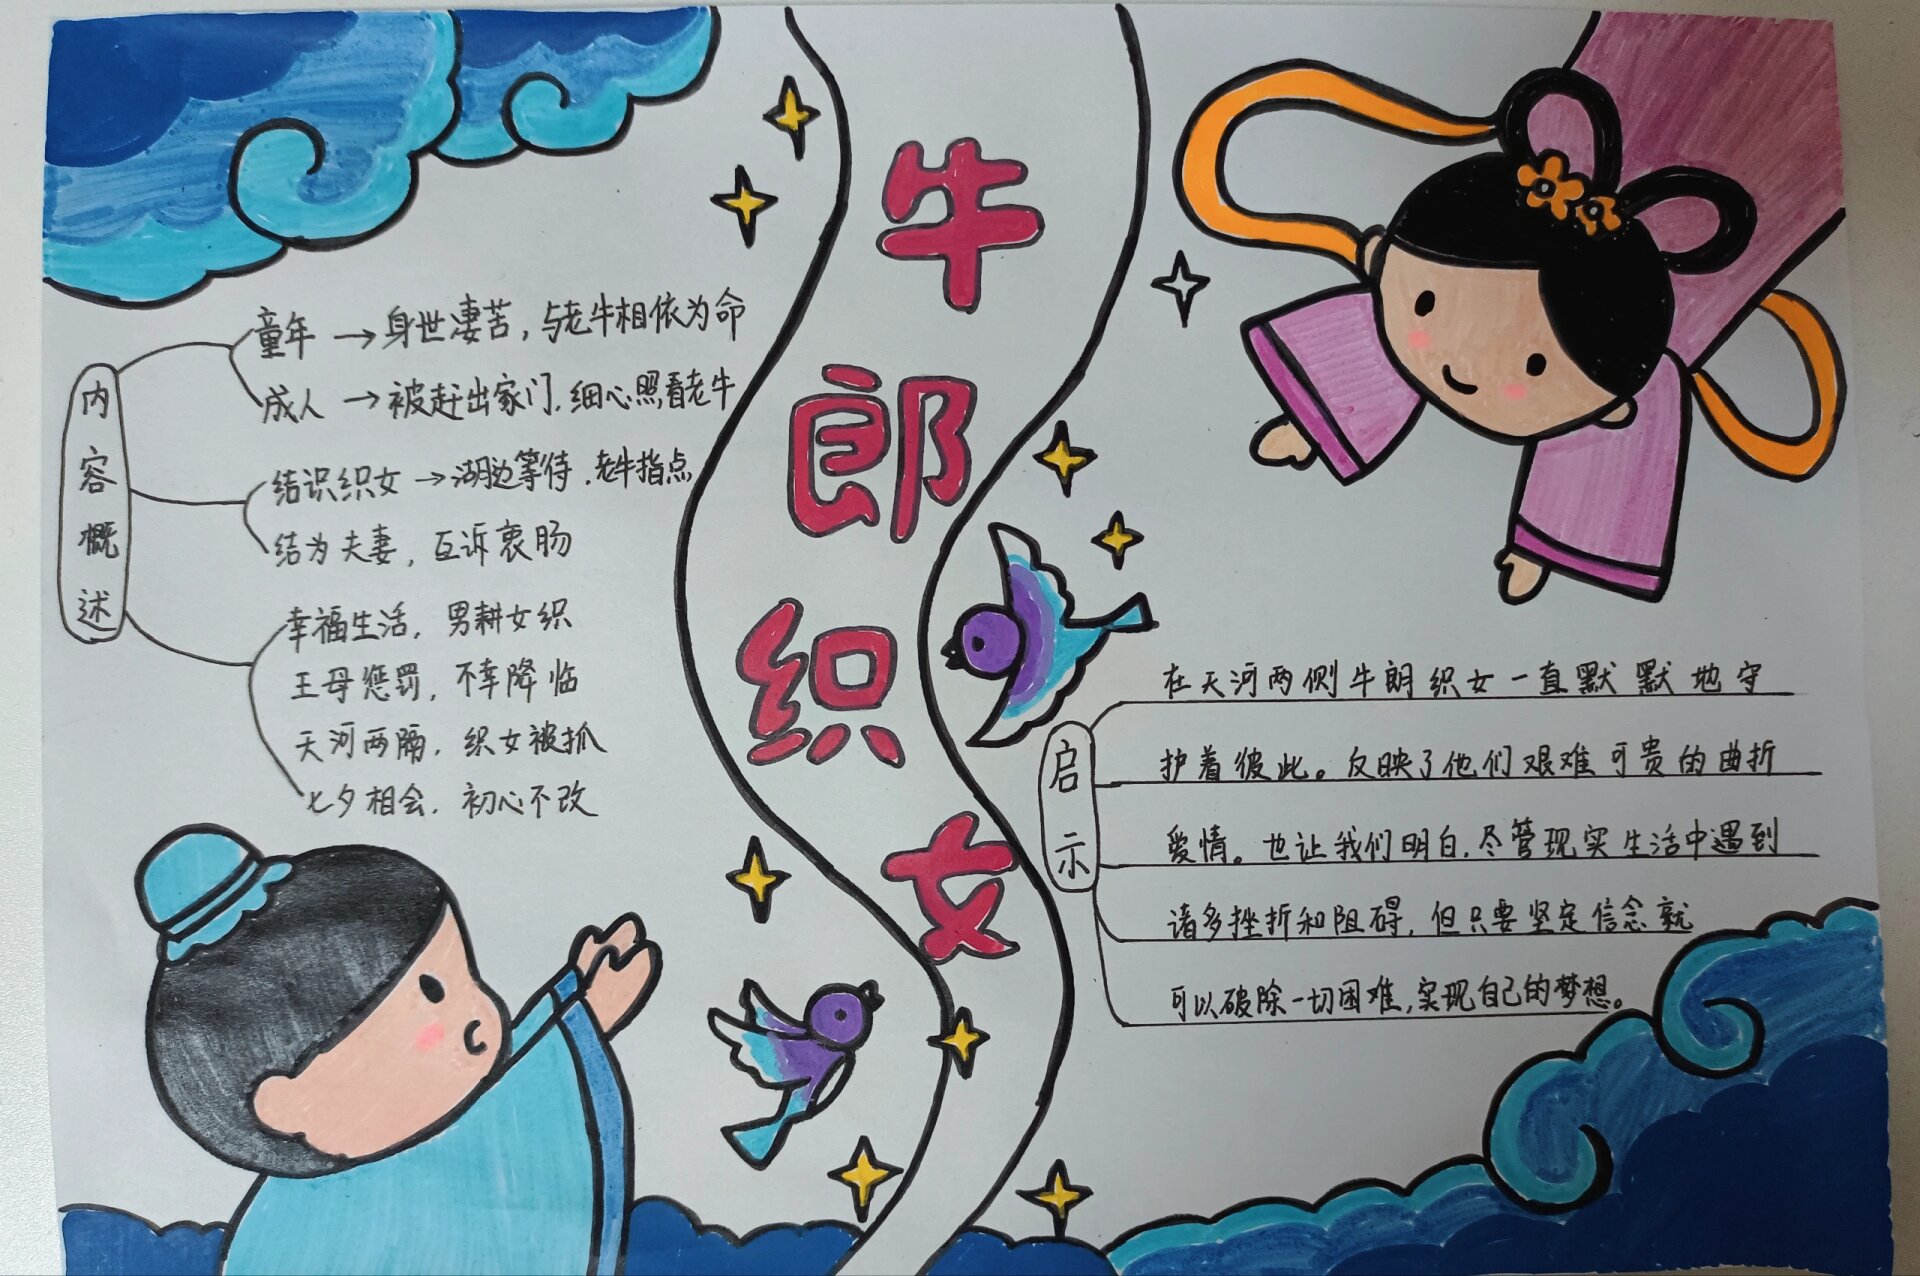 牛郎织女
内容概述
童年→身世凄苦,与老牛相依为命
成人→被赶出家门,细心照看老牛
结识织女→湖边等待,老牛指点
结为夫妻,互诉衷肠
幸福生活,男耕女织
王母惩罚,不幸降临
天河两隔,织女被抓
七夕相会,初心不改
启示
在天河两侧牛朗织女一直默默地守
护着彼此。反映了他们艰难可贵的曲折
爱情。也让我们明白,尽管现实生活中遇到
诸多挫折和阻碍,但只要坚定信念就
可以破除一切困难,实现自己的梦想。